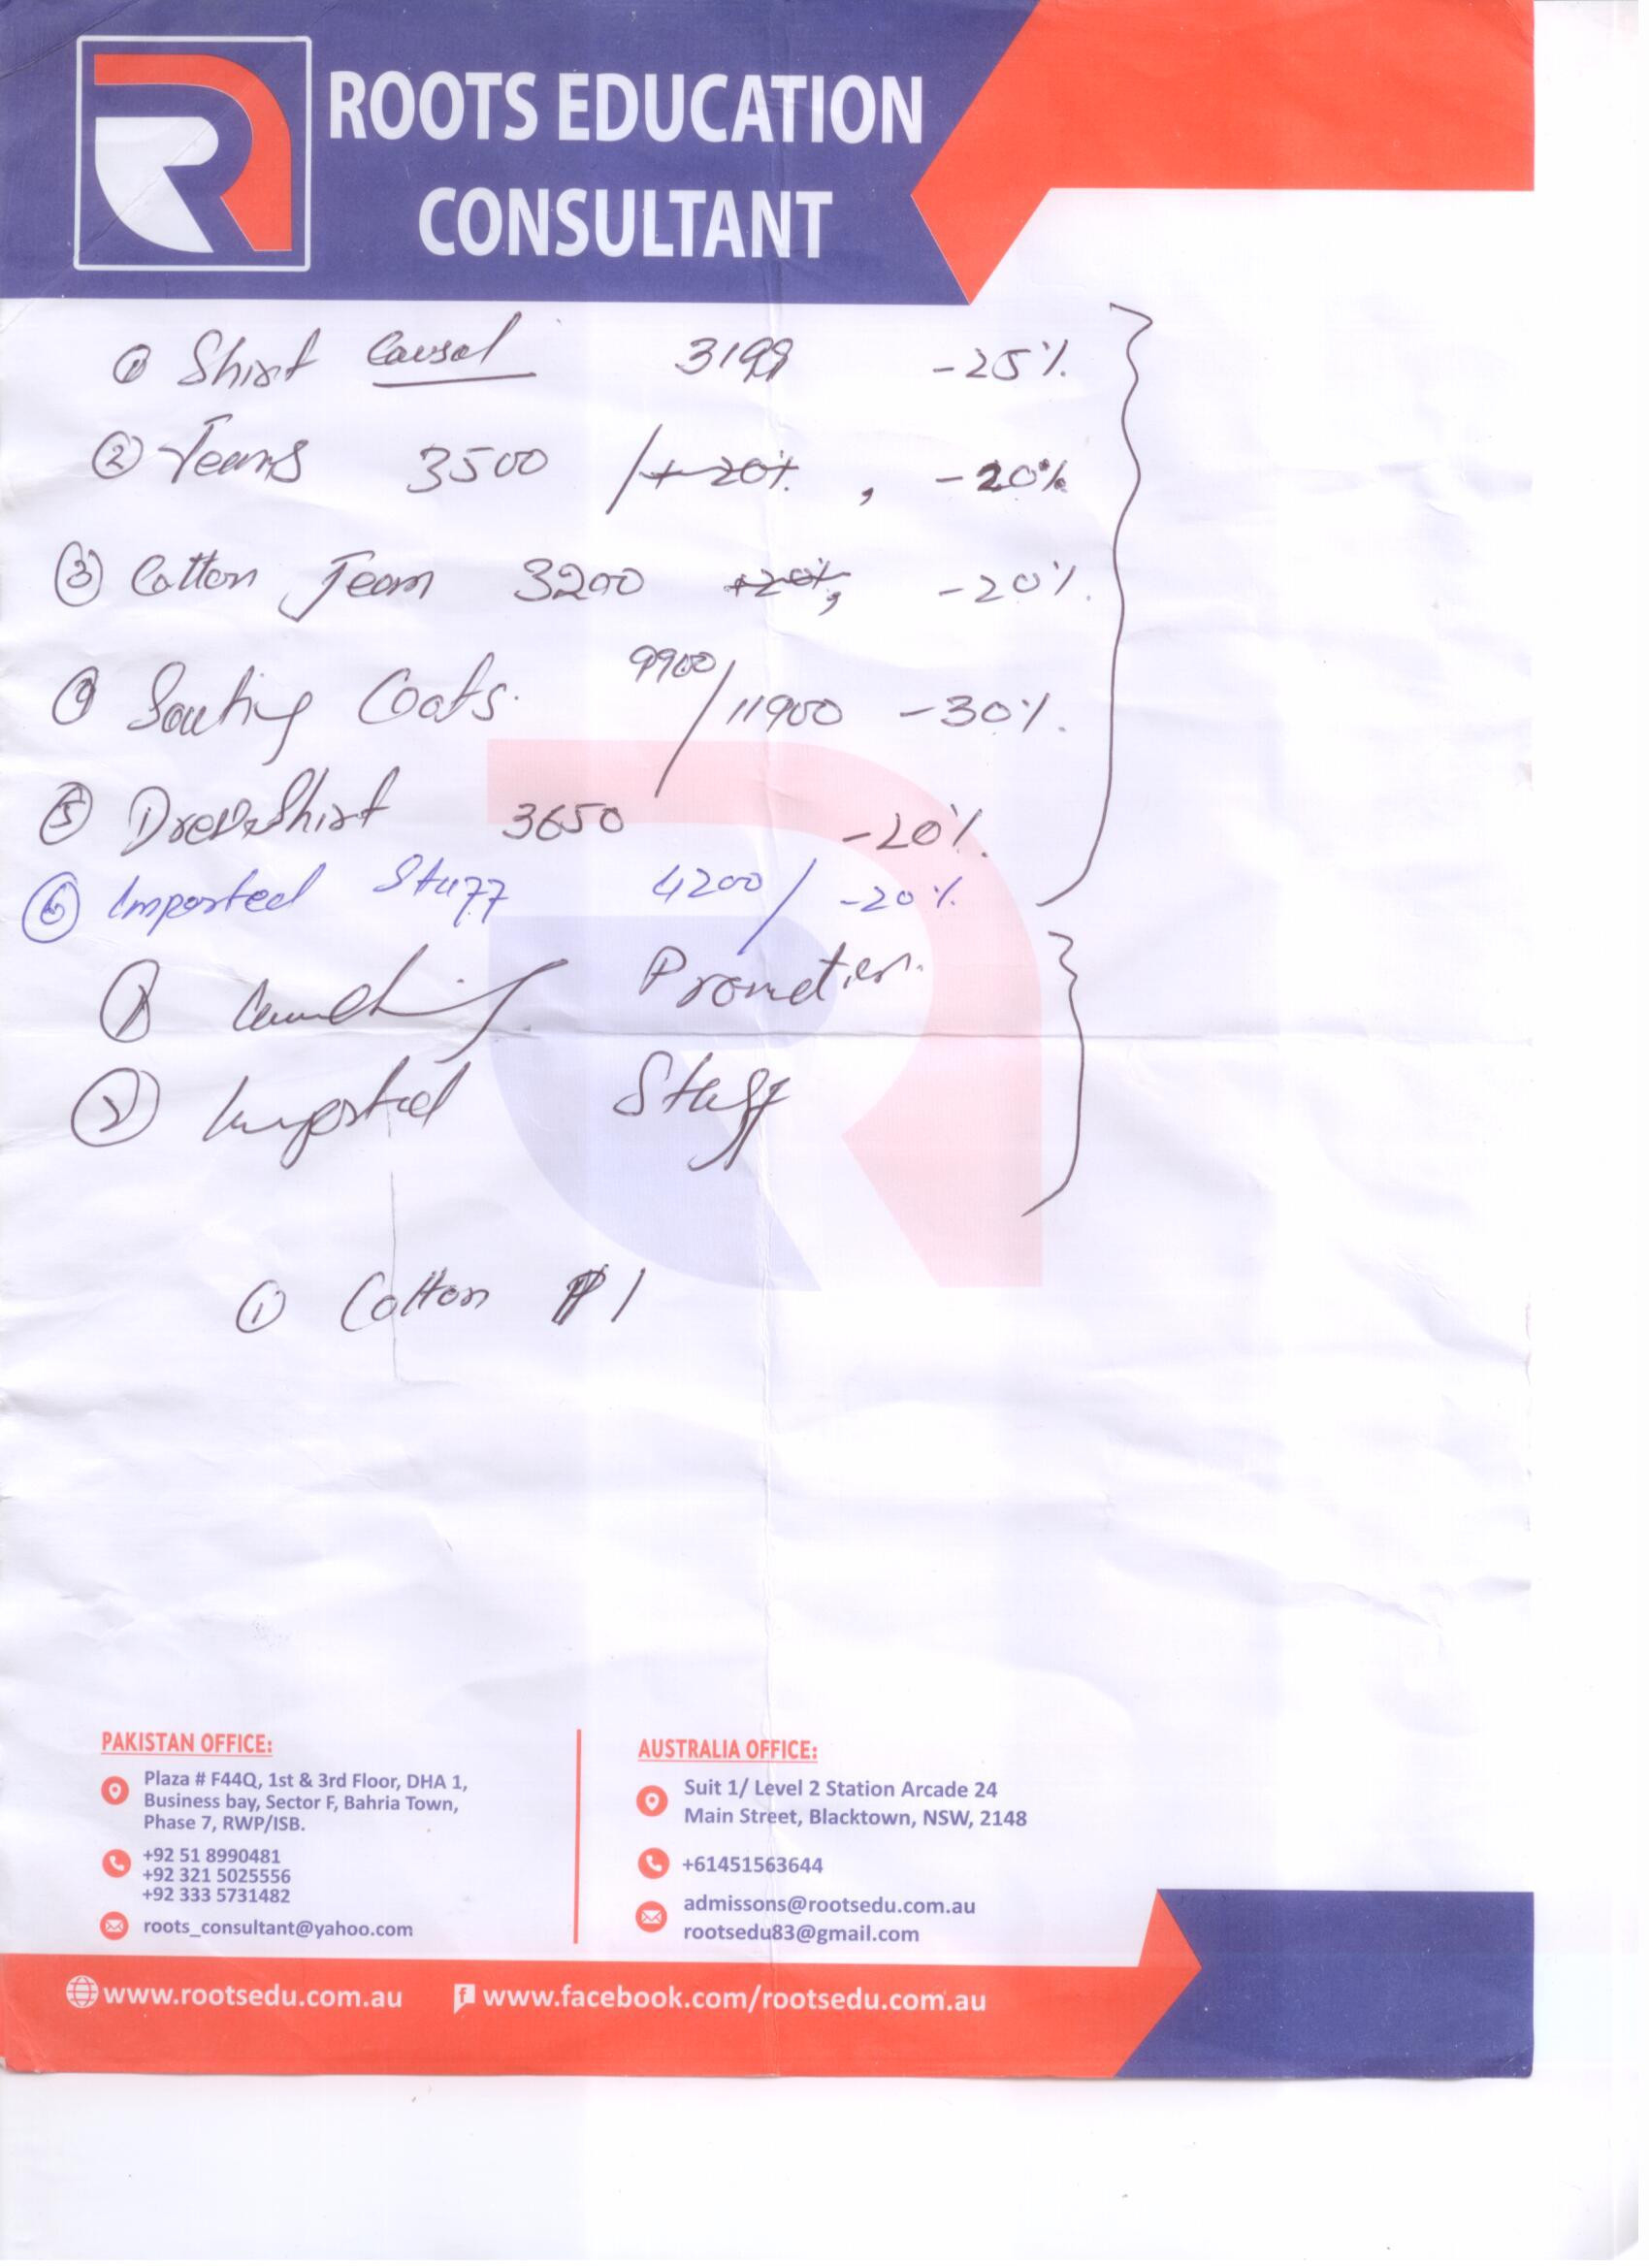 ROOTS EDUCATION
CONSULTANT
① Shirt Causal 3199 -25%
② Jeans 3500 /+20% , -20%
③ Cotton Jean 3200 +20%, -20%.
④ Souting Coats. 9900/11900 -30%.
⑤ Dress Shirt 3650 -20%.
⑥ Imported Stuff 4200/ -20%.
① Launching Promotion.
② Imported Stuff
① Cotton 1
PAKISTAN OFFICE:
Plaza # F44Q, 1st & 3rd Floor, DHA 1,
Business bay, Sector F, Bahria Town,
Phase 7, RWP/ISB.
+92 51 8990481
+92 321 5025556
+92 333 5731482
roots_consultant@yahoo.com
AUSTRALIA OFFICE:
Suit 1/ Level 2 Station Arcade 24
Main Street, Blacktown, NSW, 2148
+61451563644
admissons@rootsedu.com.au
rootsedu83@gmail.com
www.rootsedu.com.au www.facebook.com/rootsedu.com.au